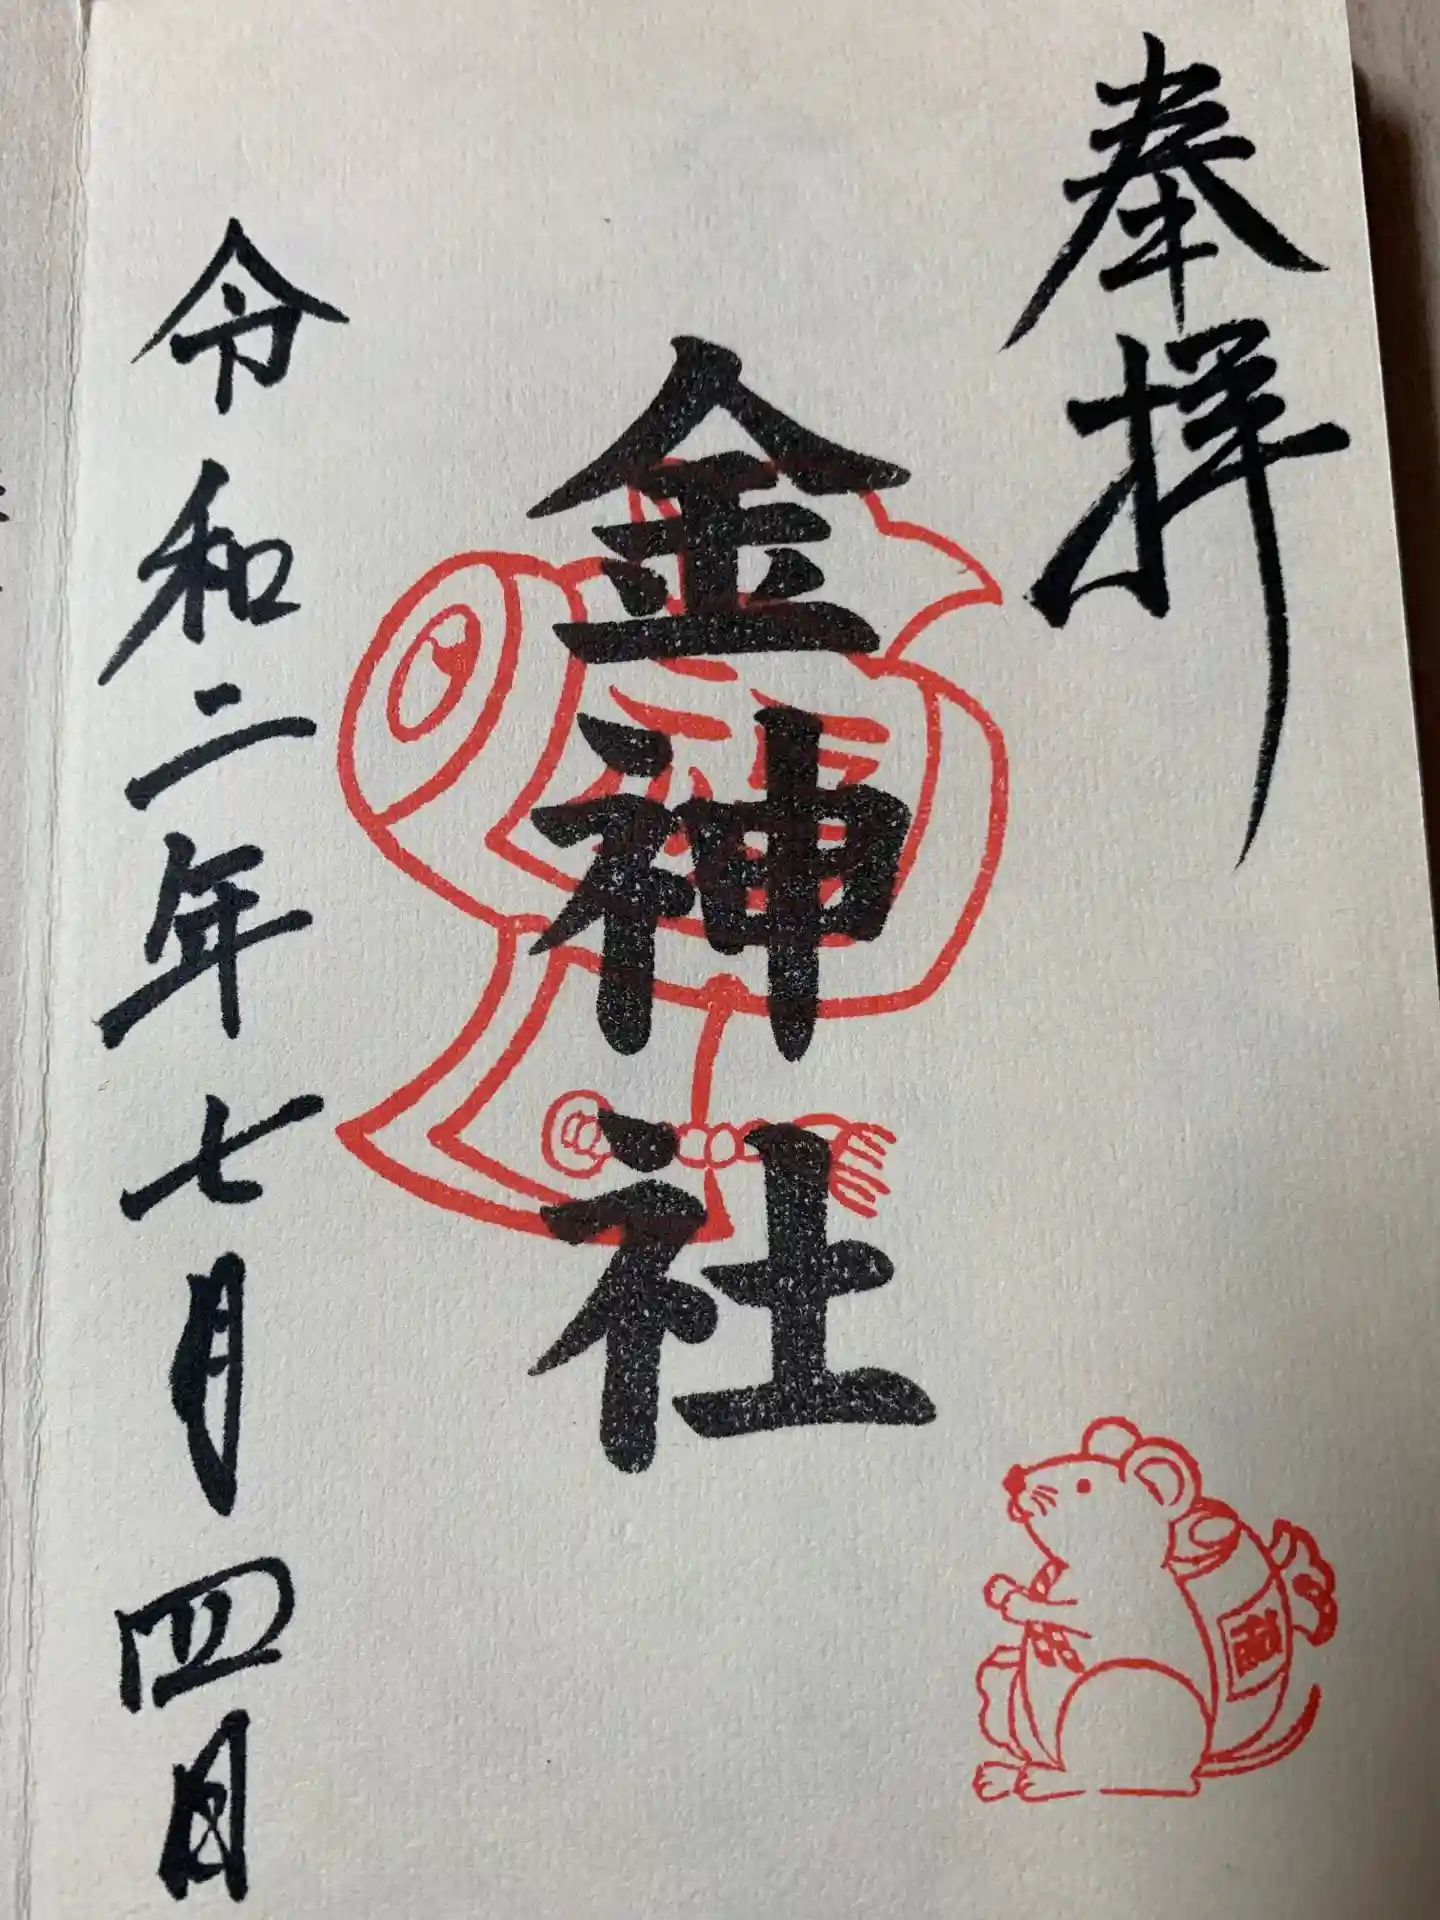 奉拝
金神社
令和二年七月四日
福